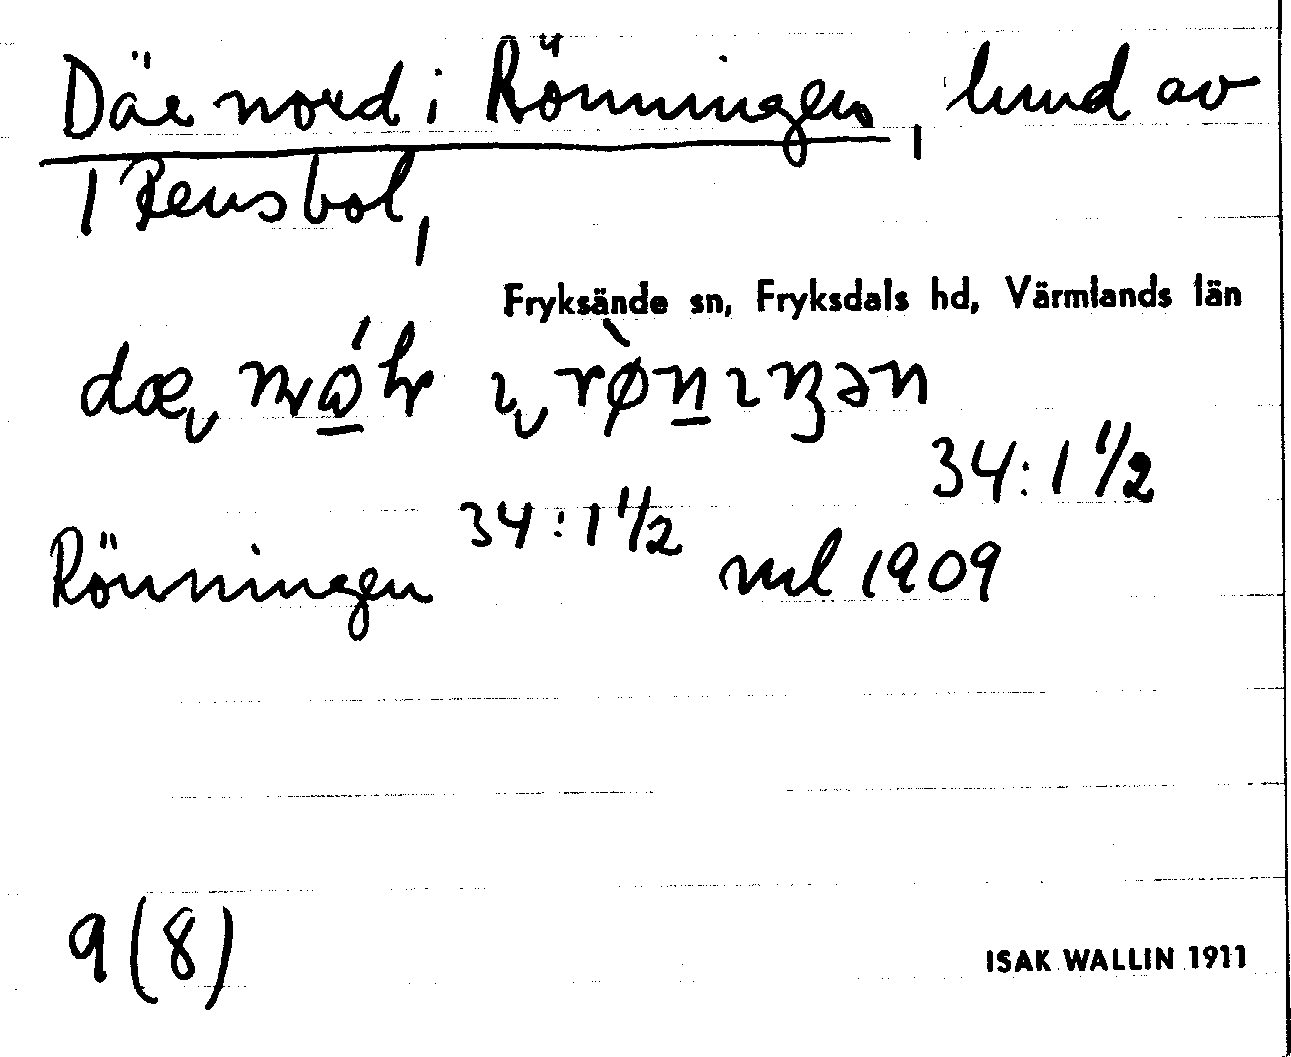 Däe nord i Rönningen, lund av
1 Rensbol,
Fryksände sn, Fryksdals hd, Värmlands län
34:1 1/2
Rönningen 34:1 1/2 ml 1909
9(8)
ISAK WALLIN 1911